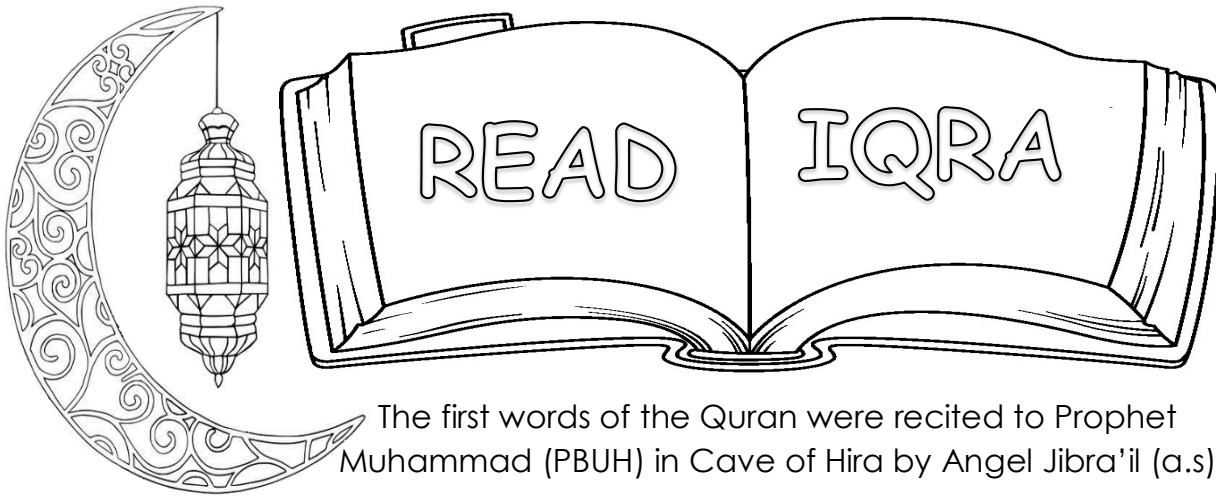 READ
IQRA
The first words of the Quran were recited to Prophet
Muhammad (PBUH) in Cave of Hira by Angel Jibra’il (a.s)